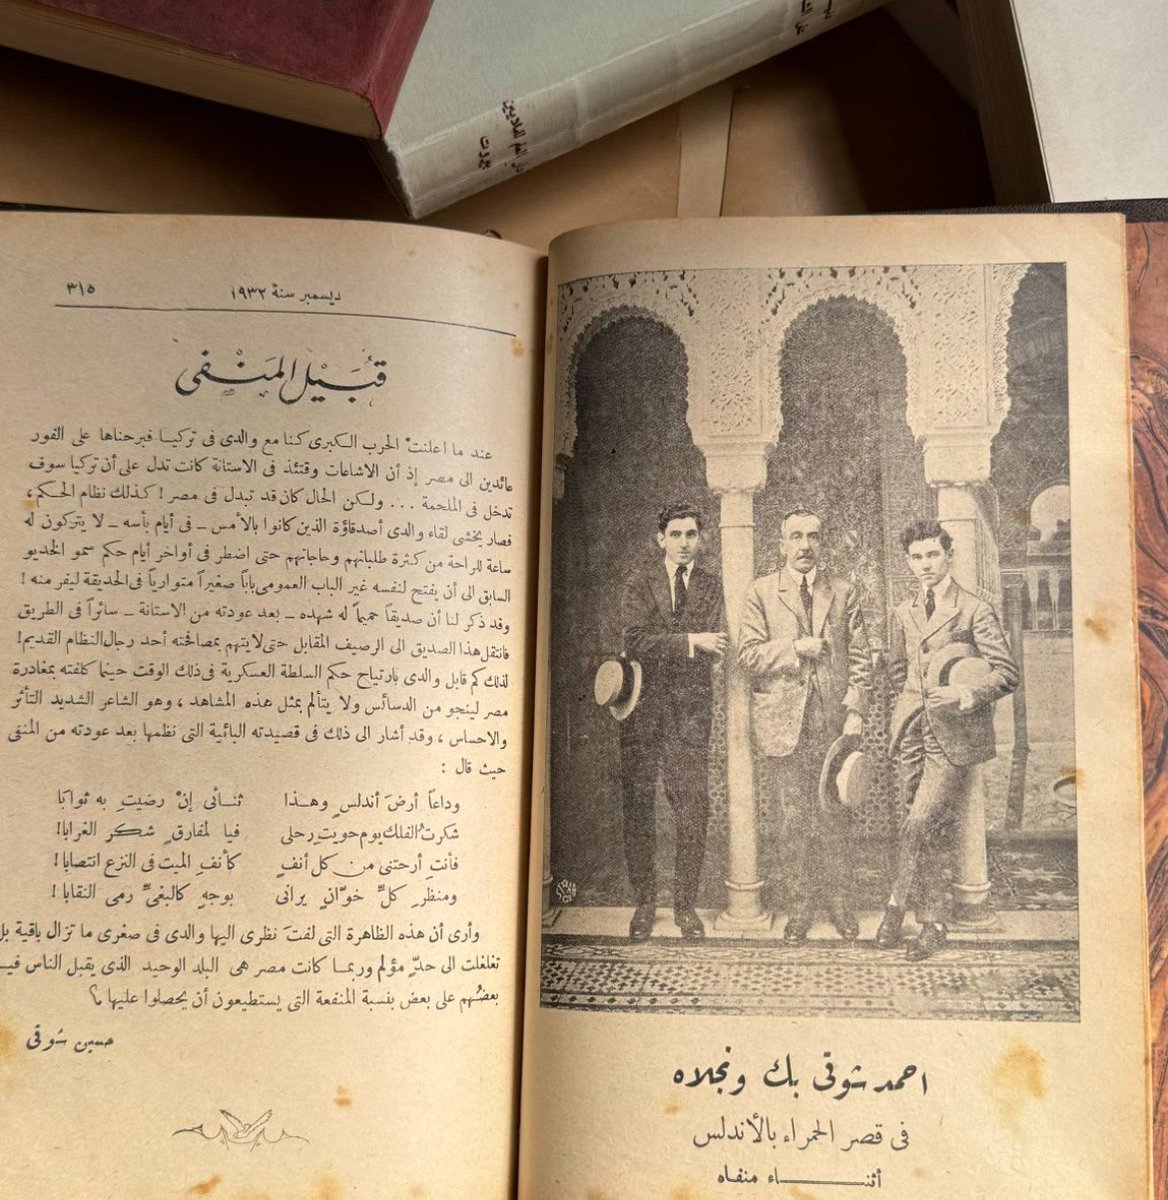 دار العلم للملايين
بيروت
ديسمبر سنة ١٩٣٢
٣١٥
قُبَيْل المَنْفى
عند ما اعلنتْ الحرب الكبرى كنا مع والدى فى تركيا فبرحناها على الفور
عائدين الى مصر إذ أن الاشاعات وقتئذ فى الاستانة كانت تدل على أن تركيا سوف
تدخل فى الملحمة ... ولكن الحال كان قد تبدل فى مصر ! كذلك نظام الحكم ،
فصار يخشى لقاء والدى أصدقاؤه الذين كانوا بالأمس ــ فى أيام بأسه ــ لا يتركون له
ساعة للراحة من كثرة طلباتهم وحاجاتهم حتى اضطر فى أواخر أيام حكم سمو الخديو
السابق الى أن يفتح لنفسه غير الباب العمومى باباً صغيراً متوارياً فى الحديقة ليفر منه !
وقد ذكر لنا أن صديقاً حميماً له شهده ــ بعد عودته من الاستانة ــ سائراً فى الطريق
فانتقل هذا الصديق الى الرصيف المقابل حتى لا يتهم بمصافحته أحد رجال النظام القديم !
لذلك كم قابل والدى بارتياح حكم السلطة العسكرية فى ذلك الوقت حينما كلفته بمغادرة
مصر لينجو من الدسائس ولا يتألم بمثل هذه المشاهد ، وهو الشاعر الشديد التأثر
والاحساس ، وقد أشار الى ذلك فى قصيدته البائية التى نظمها بعد عودته من المنفى
حيث قال :
وداعاً أرضَ أندلسٍ وهذا ثنائى إنْ رضيتِ به ثوابا
شكرتُ الفلك يوم حويتِ رحلى فيا لمفارقٍ شكر الغرابا!
فأنتِ أرحتنى من كل أنفٍ كأنفِ الميت فى النزع انتصابا!
ومنظرِ كلِّ خوّانٍ يرانى بوجهٍ كالبغىِّ رمى النقابا !
وأرى أن هذه الظاهرة التى لفتَ نظرى اليها والدى فى صغرى ما تزال باقية بل
تغلغلت الى حدٍّ مؤلم وربما كانت مصر هى البلد الوحيد الذى يقبل الناس فيه
بعضُهم على بعض بنسبة المنفعة التى يستطيعون أن يحصلوا عليها ؟
حسين شوقى
احمد شوقى بك ونجلاه
فى قصر الحمراء بالأندلس
أثنـــاء منفاه